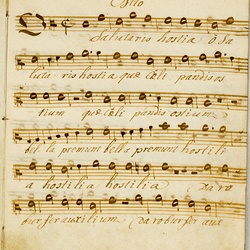 Salutaris hostia O Sa
luta ris hostia quæ cœli pandis os
tium quæ cœli pandis ostium
bel la premunt bella premunt hostili
a hostilia hostilia Da ro
bur fer auxilium Da robur fer aux